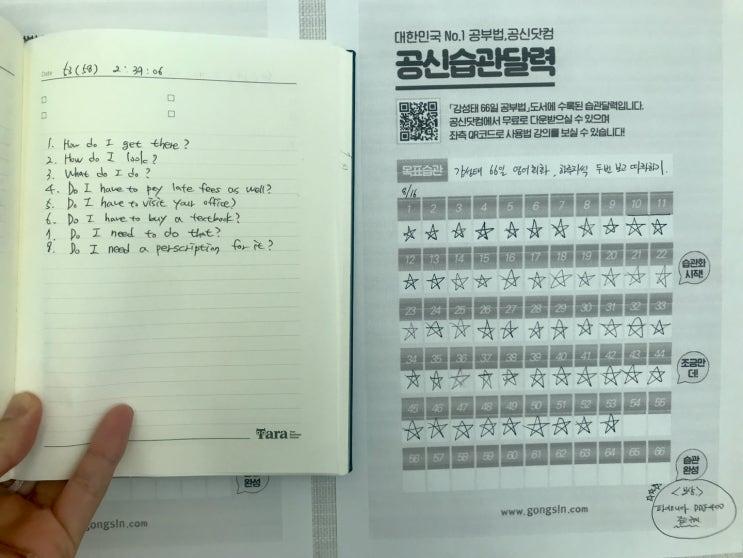 Date 53(58) 2:39:06
1. How do I get there?
2. How do I look?
3. What do I do?
4. Do I have to pay late fees as well?
5. Do I have to visit your office?
6. Do I have to buy a textbook?
7. Do I need to do that?
8. Do I need a perscription for it?
Tara
대한민국 No.1 공부법,공신닷컴
공신습관달력
「강성태 66일 공부법」도서에 수록된 습관달력입니다.
공신닷컴에서 무료로 다운받으실 수 있으며
좌측 QR코드로 사용법 강의를 보실 수 있습니다!
목표습관 강성태 66일 영어회화, 하루지씩 두번 보고 따라하기.
8/16
1 2 3 4 5 6 7 8 9 10 11
12 13 14 15 16 17 18 19 20 21 22
습관화
시작!
23 24 25 26 27 28 29 30 31 32 33
34 35 36 37 38 39 40 41 42 43 44
조금만
더!
45 46 47 48 49 50 51 52 53 54 55
56 57 58 59 60 61 62 63 64 65 66
습관
완성
<보상>
www.gongsin.com
완성
gongsin.com